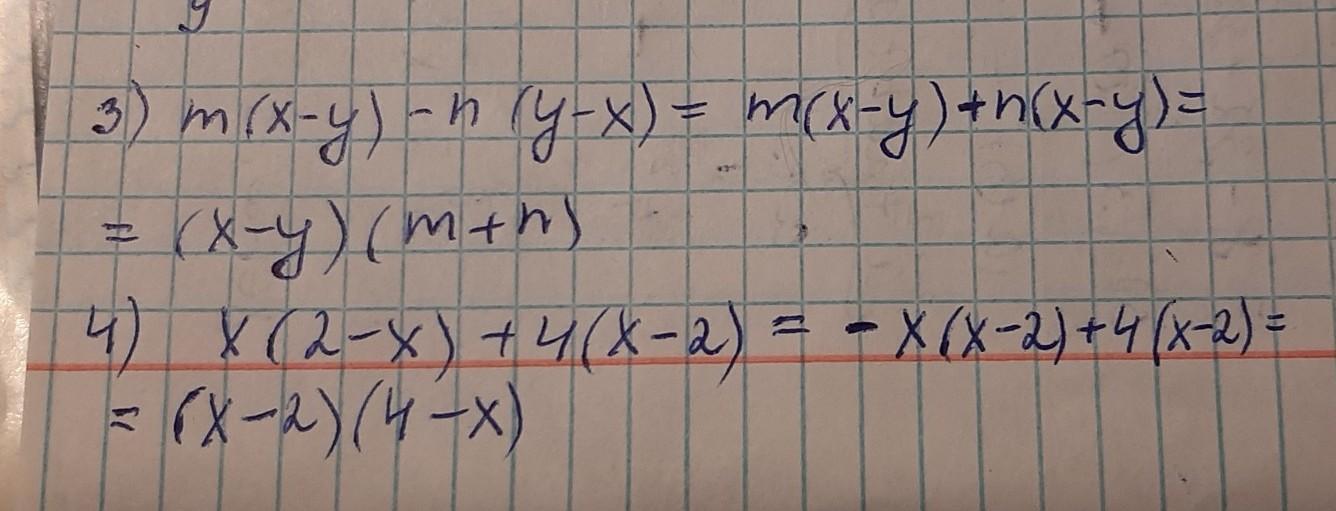 y
3) m(x-y) - n (y-x) = m(x-y)+n(x-y)=
= (x-y)(m+n)
4) x(2-x) + 4(x-2) = - x(x-2)+4(x-2)=
= (x-2)(4-x)